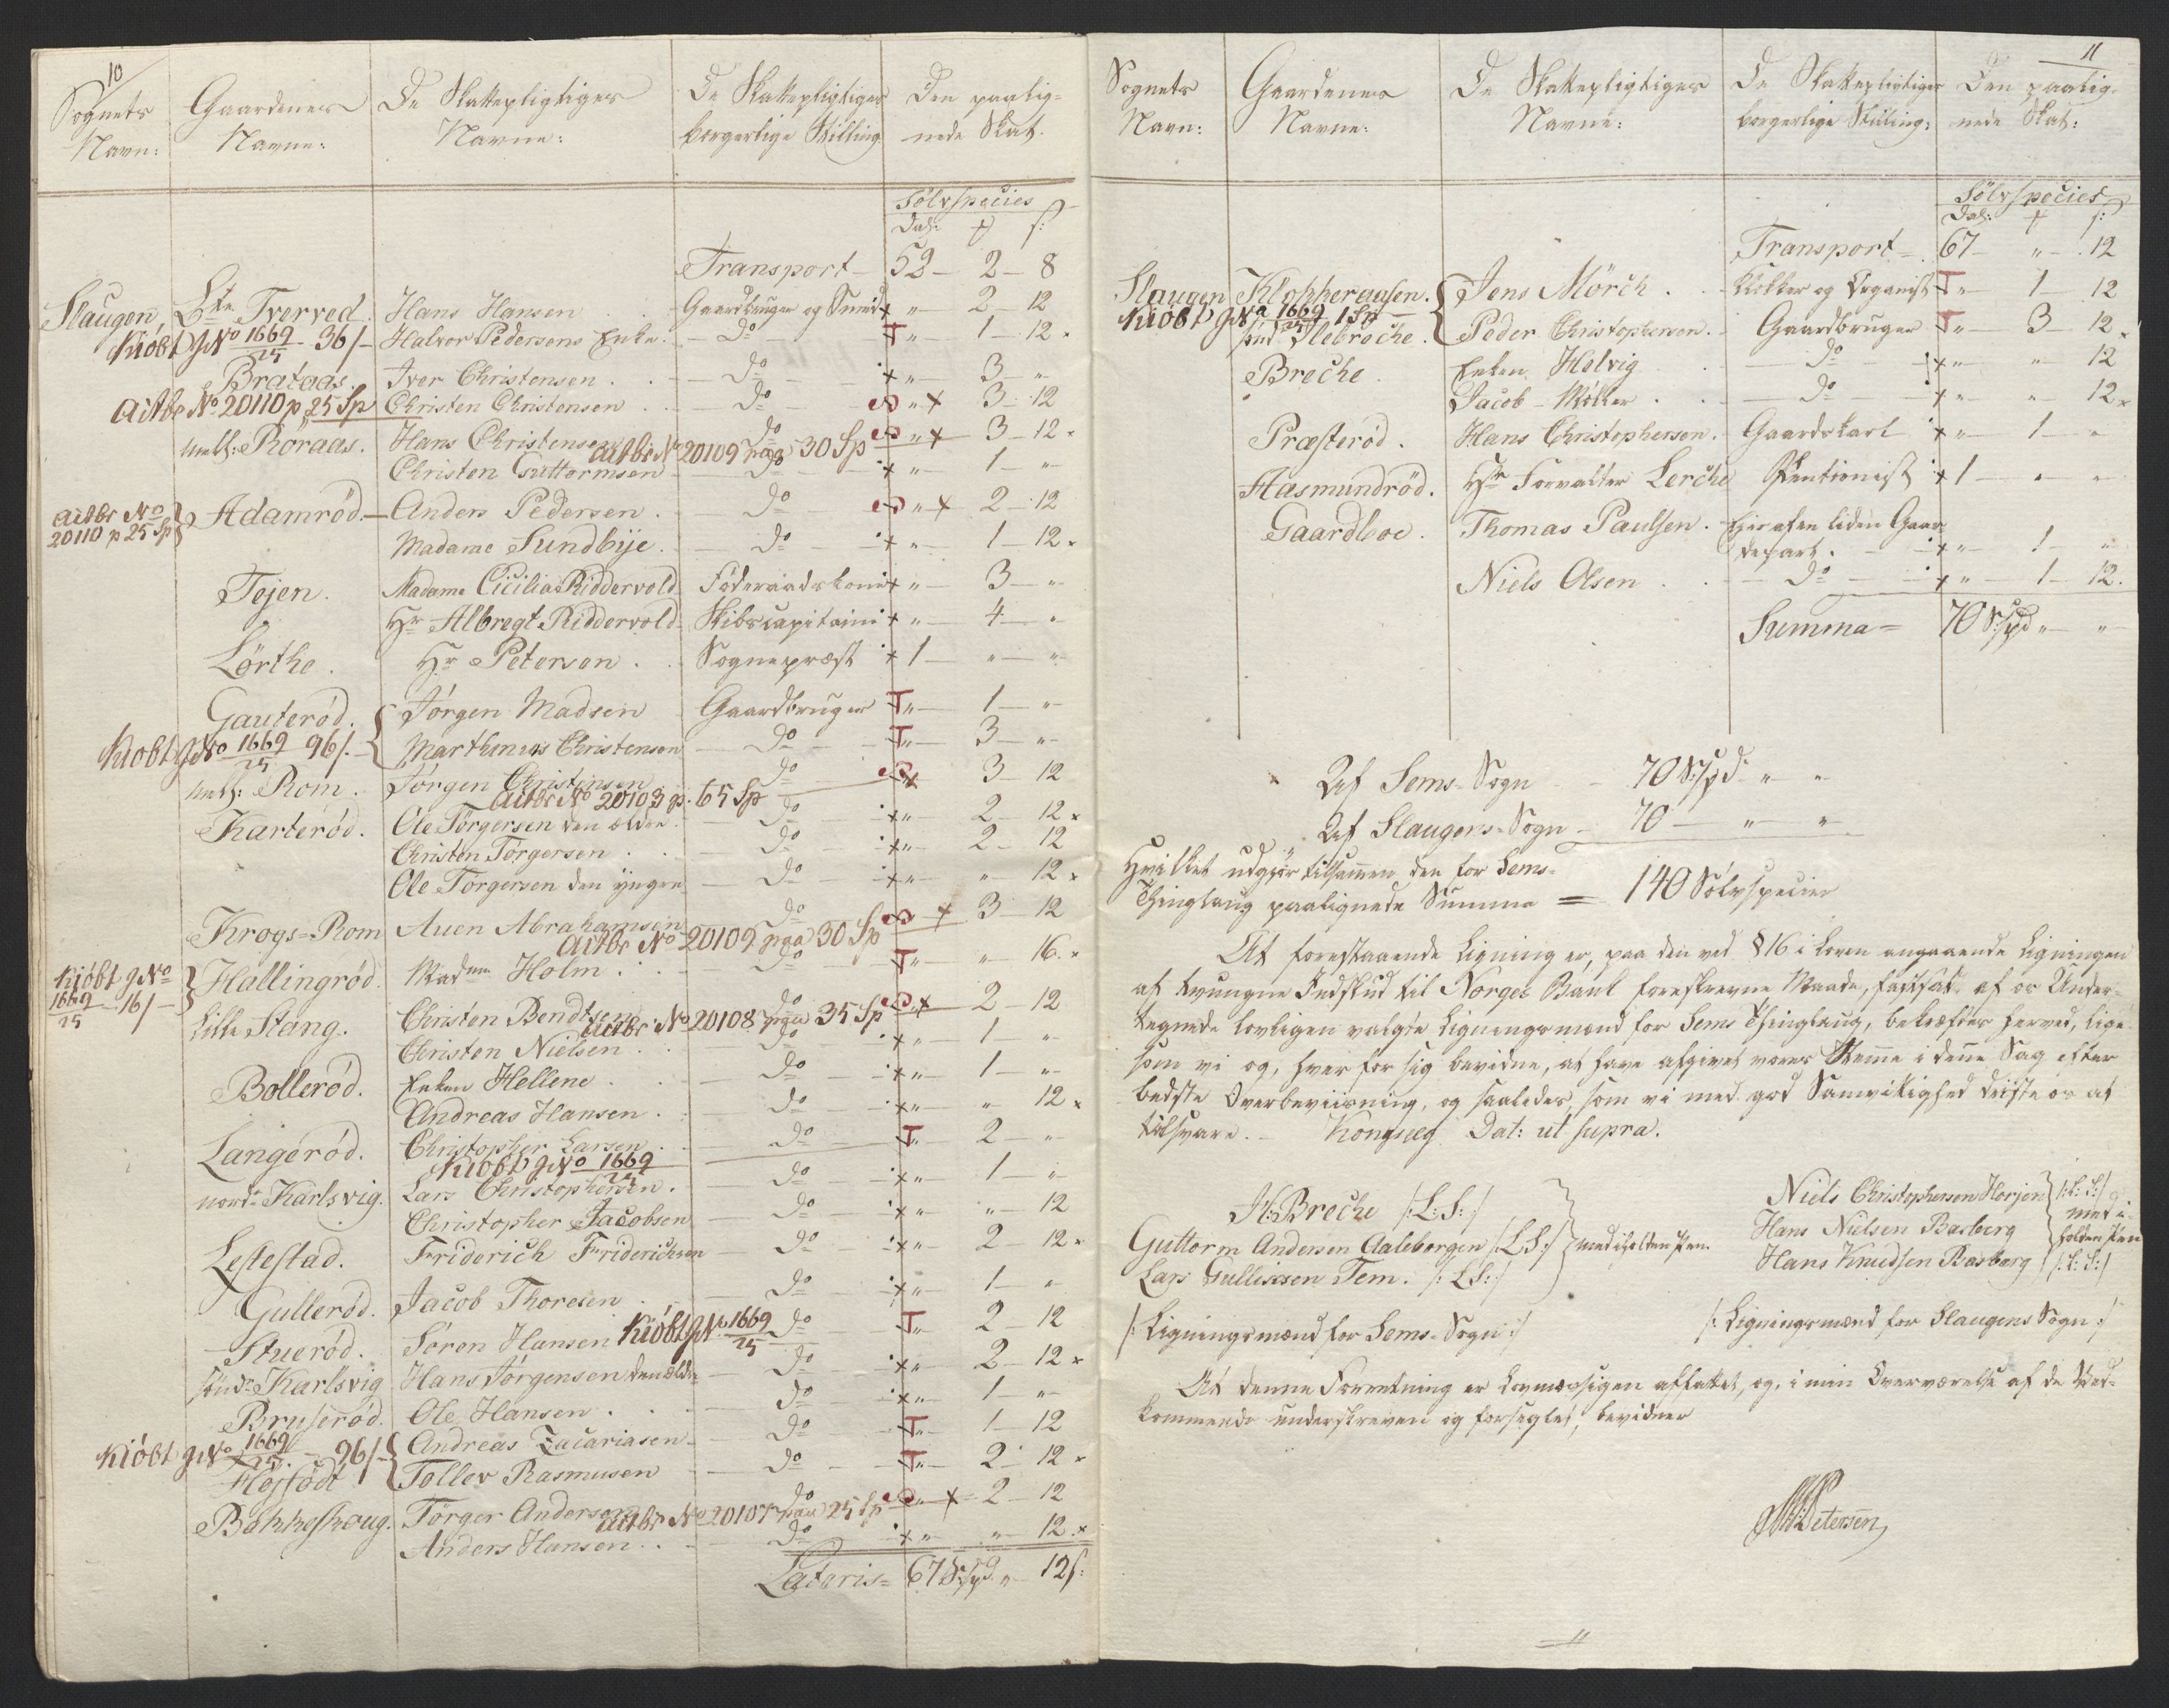 10
Sognets Navn: Gaardenes Navne: De Skattepligtiges Navne: De Skattepligtiges borgerlige Stilling Den paalignede Skat.
Sølvspecies
Dal: ʄ s:
Transport – 52 – 2 – 8
Slaugen Ltn Tverved. Hans Hansen Gaardbruger og Smed x " 2 – 12
Kiöbt gNo 1669/25 36/- Halvor Pedersens Enke. Do T " 1 – 12
Brataas. Iver Christensen Do x " 3 – "
Actbr No 20110 p 25 Sp Christen Christensen Do " x 3 – 12
mell: Roraas. Hans Christensen Do " x 3 – 12
Actbr No 20109 paa 30 Sp
Christen Guttormsen Do x " 1 – "
Actbr No 20110 p 25 Sp Adamröd. Anders Pedersen. Do " x 2 – 12
Madame Sundbÿe. Do x " 1 – 12
Tejen. Madame Cicilia Riddervold Föderaadskone x " 3 – "
Hr Albregt Riddervold Skibscapitain x " 4 – "
Lörthe. Hr Petersen. Sognepræst x 1 – " – "
Gauteröd. Jörgen Madsen Gaardbruger T " 1 – "
Kiobt gNo 1669/25 96/- Marthinus Christensen Do T " 3 – "
mell: Rom. Jörgen Christensen Do x 3 – 12
Actbr No 20103 p. 65 Sp
Karteröd. Ole Törgersen den ældre. Do x " 2 – 12
Christen Törgersen Do x " 2 – 12
Ole Törgersen den ÿngre Do x " " – 12
Krogs-Rom Auen Abrahamsen Do x 3 – 12
Actbr No 20109 paa 30 Sp
Kiöbt gNo 1669/25 16/- Hallingröd. Madme Holm Do T " " – 16
Lille Stang. Christen Bendtsen Do x 2 – 12
Actbr No 20108 paa 35 Sp
Christen Nielsen Do x " 1 – "
Bolleröd. Enken Hellene Do x " 1 – "
Andreas Hansen. Do x " " – 12
Langeröd. Christopher Larsen Do T " 2 – "
Kiöbt gNo 1669/25
nord: Karlsvig. Lars Christophersen. Do x " 1 – "
Christopher Jacobsen Do x " " – 12
Lestestad. Friderich Friderichsen Do x " 2 – 12
Gulleröd. Jacob Thoresen Do x " 1 – "
Stueröd. Sören Hansen Kiöbt gNo 1669/25 Do T " 2 – 12
sönd: Karlsvig Hans Jörgensen den ældre Do x " 2 – 12
Bruseröd. Ole Hansen Do x " 1 – "
Kiöbt gNo 1669/25 96/- Andreas Zacariasen Do T " 1 – 12
Flojfödt Tollev Rasmusen Do T " 2 – 12
Bakkeshaug. Törger Andersen Do x 2 – 12
Actbr No 20107 paa 25 Sp
Anders Hansen Do x " " – 12
Lateris = 67 S:spd " 12 s:
11
Sognets Navn: Gaardenes Navne: De Skattepligtiges Navne: De Skattepligtiges borgerlige Stilling: Den paalignede Skat:
Sølvspecies
Dal: ʄ s:
Transport – 67 – " – 12
Slaugen Klokkeraasen. Jens Mörch Klokker og Organist T " 1 – 12
Kiöbt gNo 1669/25 1 Sp sönd Slebroche. Peder Christophersen. Gaardbruger T " 3 – 12
Breche. Enken Helvig Do x " " 12
Jacob Möller Do x " " 12
Præsteröd. Hans Christophersen. Gaardskarl x " 1 – "
Hasmundröd. Hr Forvalter Lerche Pentionist x 1 – " – "
Gaardboe. Thomas Paulsen. Ejer af en liden Gaardepart. x " 1 – "
Niels Olsen Do x " 1 – 12.
Summa = 70 S:spd " "
Af Sems-Sogn – 70 S:spd " "
Af Slaugens-Sogn – 70 – " – "
Hvilket udgjør tilsamen den for Sems-
Thinglaug paalignede Summa = 140 Sølvspecier
At forestaaende Ligning er, paa den ved § 16 i Loven angaaende Ligningen
af tvungne Indskud til Norges Bank foreskrevne Maade, fastsat af os Under-
tegnede lovligen valgte Ligningsmænd for Sems Thinglaug, bekræftes herved, lige-
som vi og, hver for sig bevidne, at have afgivet vores Stemme i denne Sag efter
bedste Overbeviisning, og saaledes, som vi med god Samvittighed driste os at
tilsvare. Kongseeg Dat: ut supra.
H: Breche /:L:S:/
Guttorm Andersen Aalebergen /:LS:/ med iholden Pen.
Lars Gullissen Tem. /:LS:/
/:Ligningsmænd for Sems-Sogn:/
Niels Christophersen Horjen /:L:S:/
Hans Nielsen Basberg med iholden Pen
Hans Knudsen Basberg /:L:S:/
/:Ligningsmænd for Slaugens Sogn:/
At denne Forretning er Lovmæssigen affattet, og, i min Overværelse af de Ved-
kommende underskreven og forseglet, bevidner
Petersen